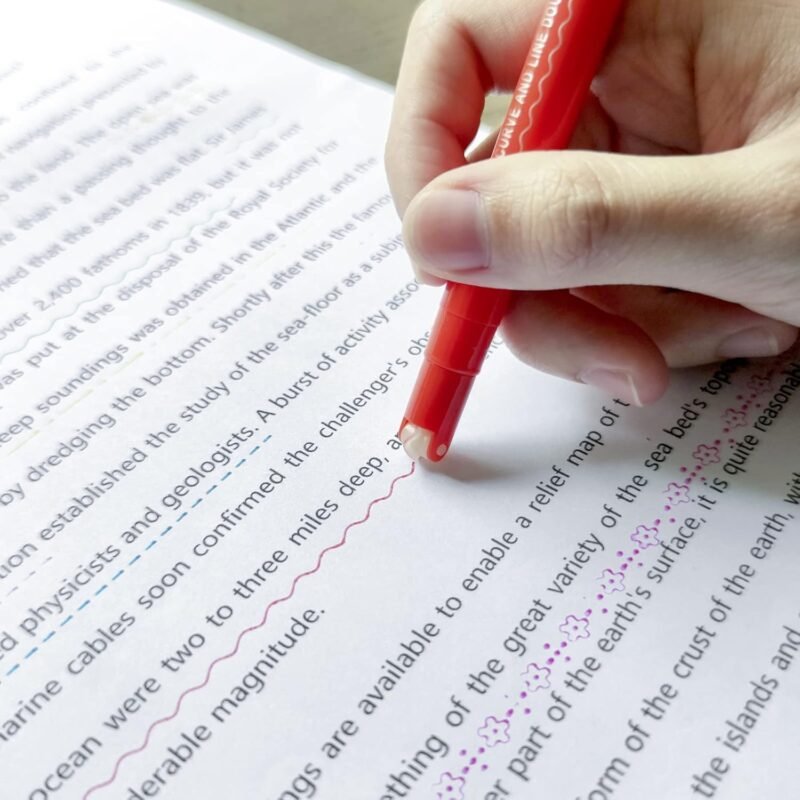 CURVE AND LINE
confined to the
navigation presented by
to the land. The open sea was
re than a passing thought to the
ned that the sea bed was flat. Sir James
over 2,400 fathoms in 1839, but it was not
was put at the disposal of the Royal Society for
eep soundings was obtained in the Atlantic and the
by dredging the bottom. Shortly after this the famous
established the study of the sea-floor as a
physicists and geologists. A burst of activity
marine cables soon confirmed the challenger's
ocean were two to three miles deep,
derable magnitude.
ngs are available to enable a relief map of
ething of the great variety of the sea bed's
er part of the earth's surface, it is quite
form of the crust of the earth,
the islands and